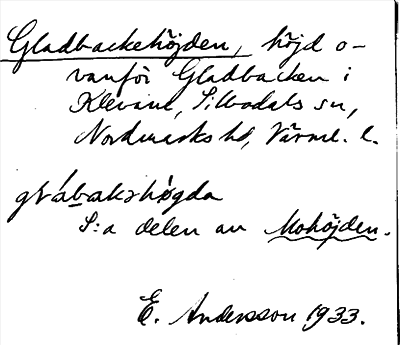 Gladbackehöjden, höjd o-
vanför Gladbacken i
Klevane, Silbodals sn,
Nordmarks hd, Värml. l.
S:a delen av Mohöjden.
E. Andersson 1933.